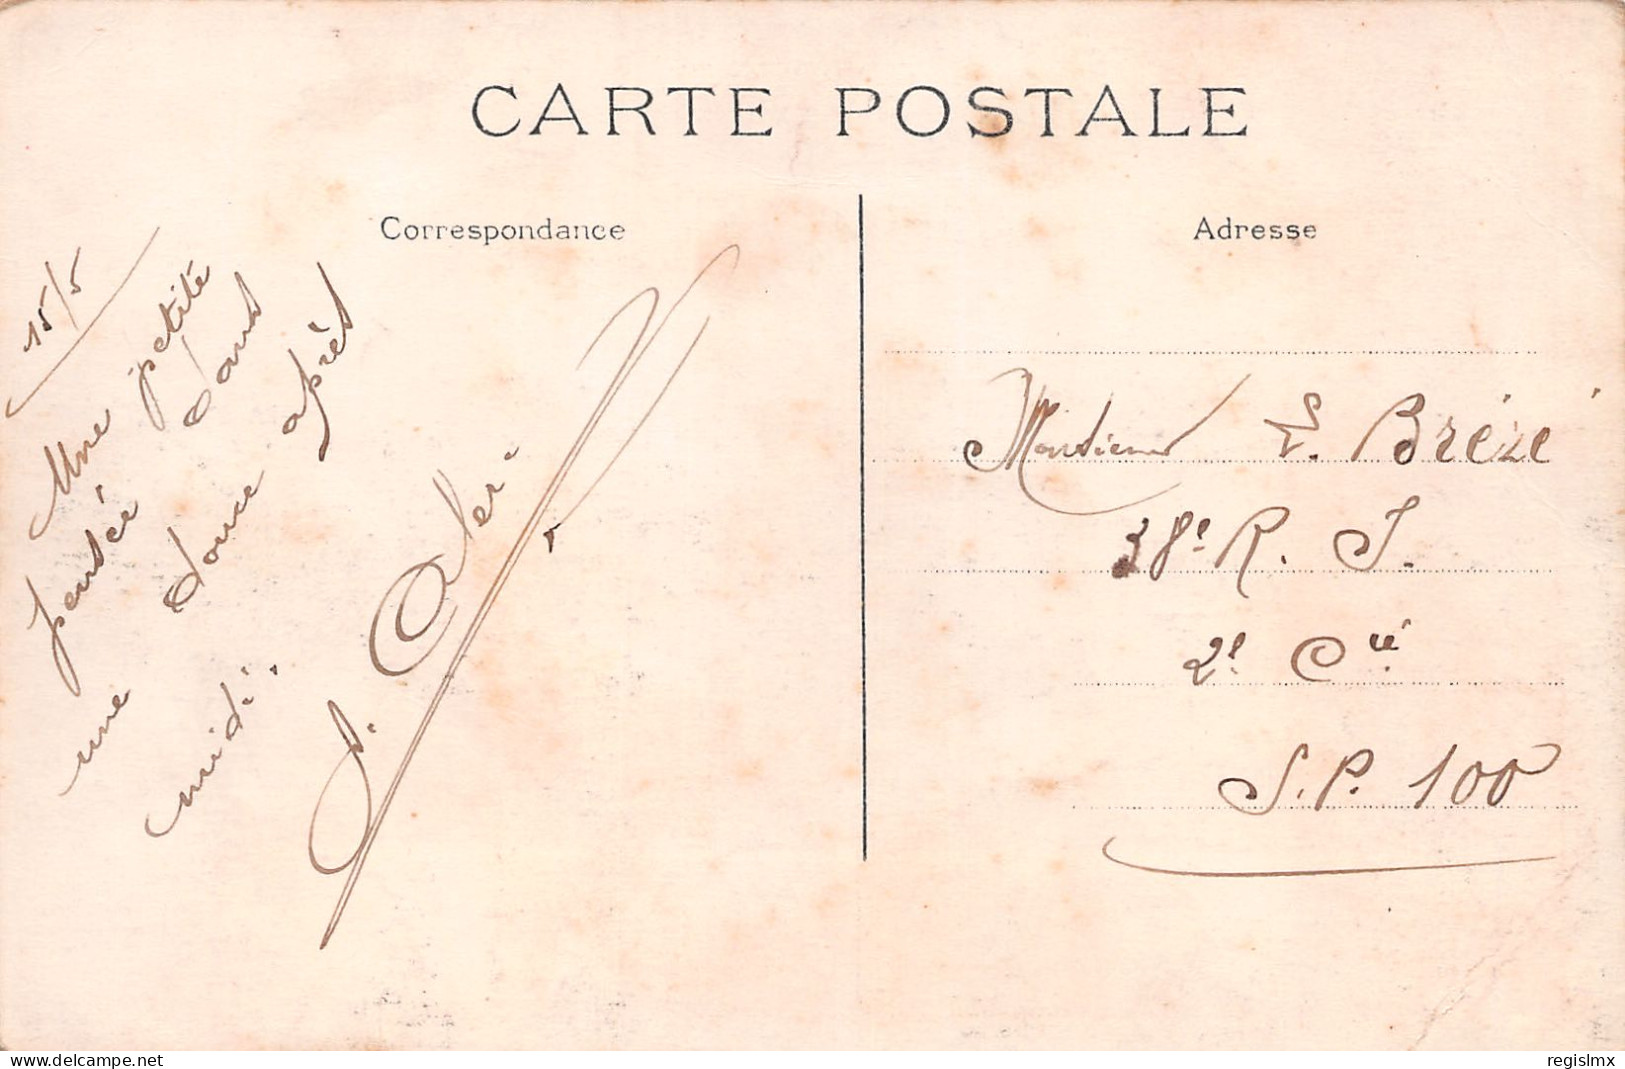 CARTE POSTALE
Correspondance
Adresse
15/5
Une petite
pensée dans
une douce après
midi.
Monsieur E. Brézé
38e R. I.
2e Cie
S.P. 100
delcampe.net
regislmx